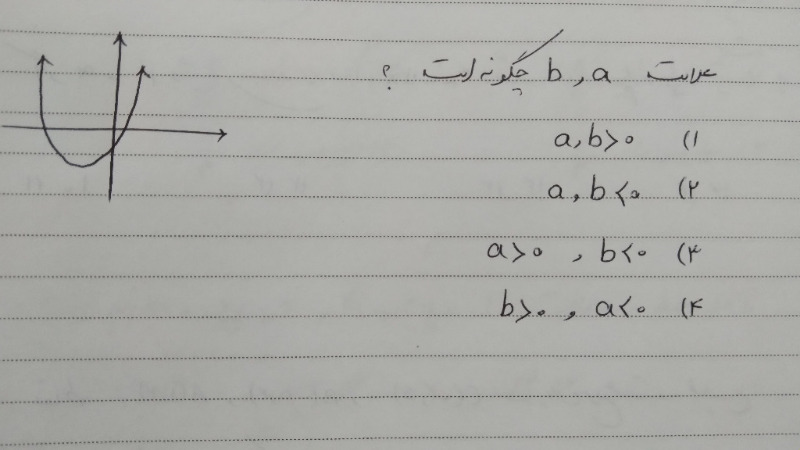 علامت a , b چگونه است ؟
۱) a , b > ۰
۲) a , b < ۰
۳) a > ۰ , b < ۰
۴) b > ۰ , a < ۰